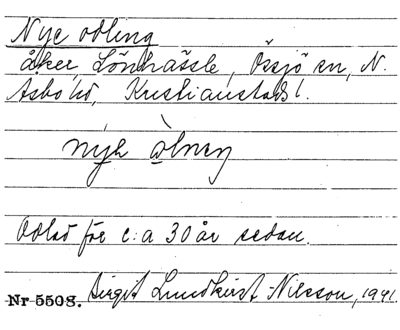 Nye odling
åker, Lönhässle, Össjö sn, N.
Åsbo hd, Kristianstads l.
nýa òlney
Odlad för c:a 30 år sedan.
Nr 5508. Birgit Lundkvist-Nilsson, 1941.